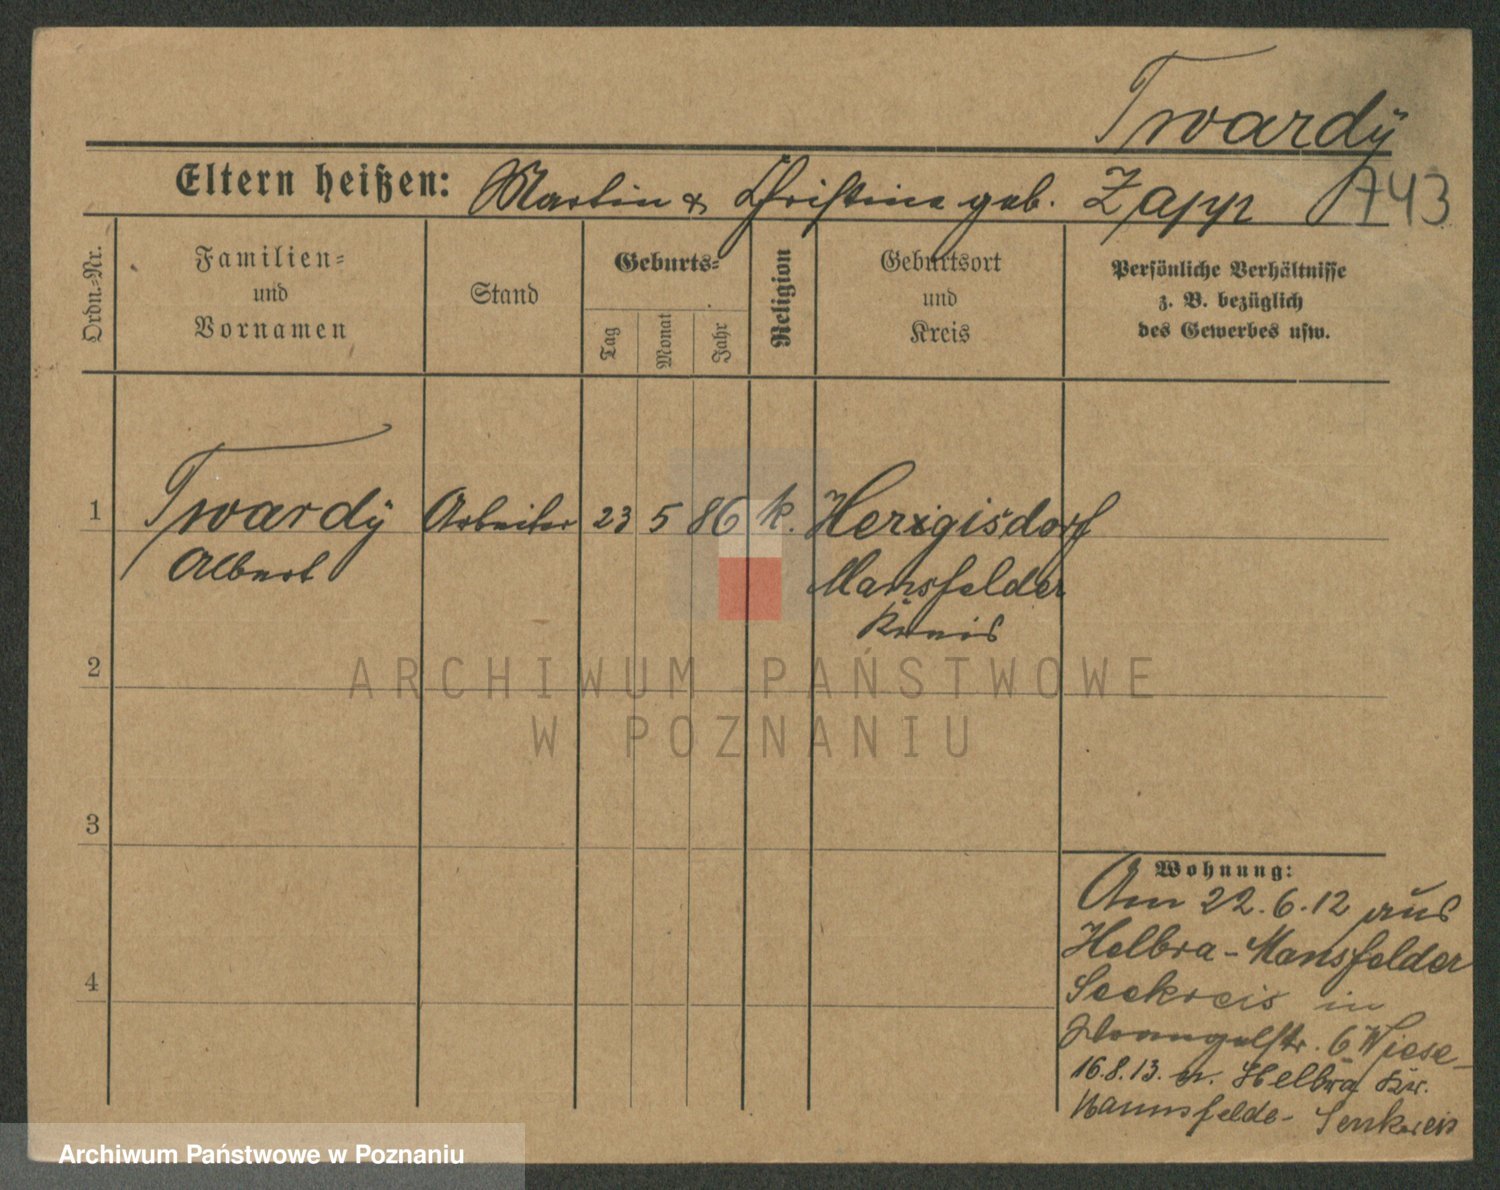 Twardÿ
Eltern heißen: Martin & Christine geb. Zapp 743
Ordn.-Nr.
Familien-
und
Vornamen
Stand
Geburts-
Tag
Monat
Jahr
Religion
Geburtsort
und
Kreis
Persönliche Verhältnisse
z. B. bezüglich
des Gewerbes usw.
1 Twardÿ Arbeiter 23 5 86 k. Hergisdorf
Albert Mansfelder
Kreis
2
3
4
Wohnung:
Am 22.6.12 aus
Helbra-Mansfelder
Seekreis in
6 Wiese
16.8.13. n. Helbra Kr.
Mannsfelde- Seekreis
ARCHIWUM PAŃSTWOWE
W POZNANIU
Archiwum Państwowe w Poznaniu